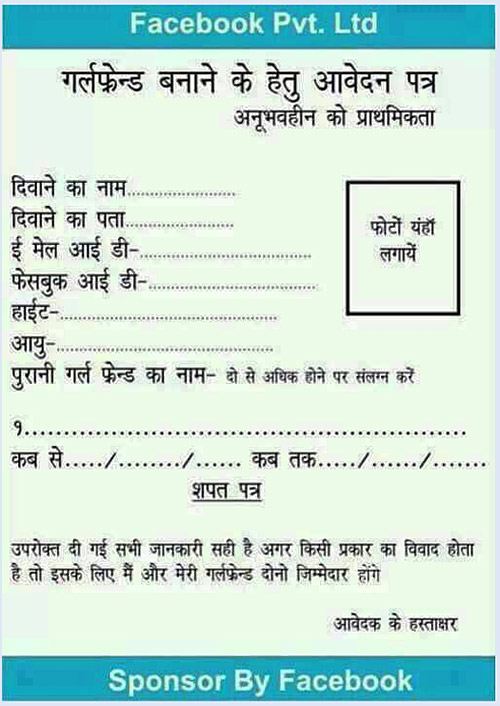 Facebook Pvt. Ltd
गर्लफ्रेन्ड बनाने के हेतु आवेदन पत्र
अनूभवहीन को प्राथमिकता
दिवाने का नाम......................
दिवाने का पता......................
ई मेल आई डी-...................................
फेसबुक आई डी-..................................
हाईट-............................................
आयु-............................................
फोटों यंहॉ
लगायें
पुरानी गर्ल फ्रेन्ड का नाम- दो से अधिक होने पर संलग्न करें
१.......................................................
कब से...../......../...... कब तक...../....../.......
शपत पत्र
उपरोक्त दी गई सभी जानकारी सही है अगर किसी प्रकार का विवाद होता
है तो इसके लिए मैं और मेरी गर्लफ्रेन्ड दोनो जिम्मेदार होंगे
आवेदक के हस्ताक्षर
Sponsor By Facebook